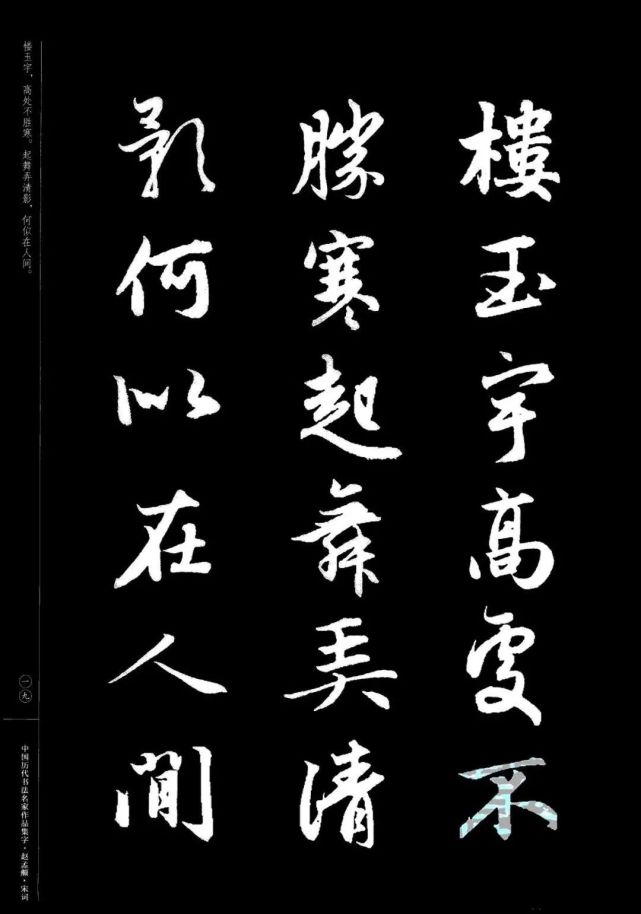 樓玉宇高處不
勝寒起舞弄清
影何似在人間
楼玉宇，高处不胜寒。起舞弄清影，何似在人间。
一九
中国历代书法名家作品集字·赵孟頫·宋词